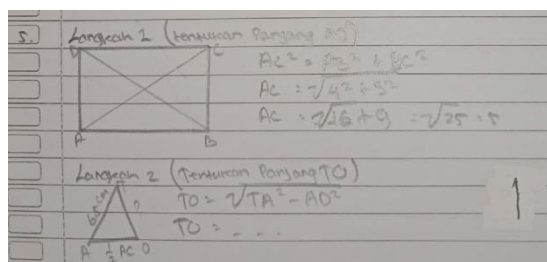 5. Langkah 1 (tentukan Panjang AO)
D C
AC² = AB² + BC²
AC = √4² + 3²
AC = √16 + 9 = √25 = 5
A B
Langkah 2 (Tentukan Panjang TO)
T
6,5 cm ? TO = √TA² - AO²
TO = - - -
A ½ AC O
1